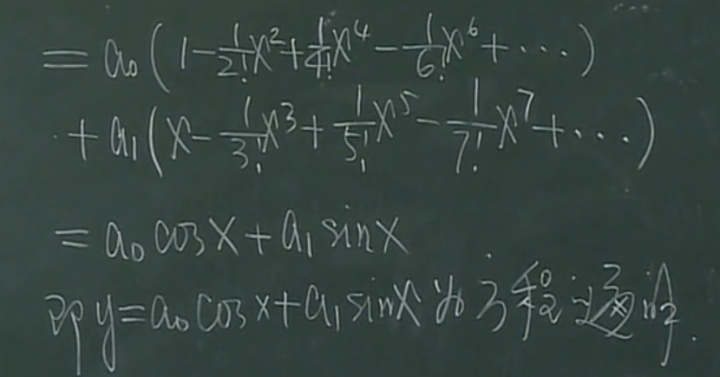 = a₀(1 - 1/2! x² + 1/4! x⁴ - 1/6! x⁶ + ⋯)
+ a₁(x - 1/3! x³ + 1/5! x⁵ - 1/7! x⁷ + ⋯)
= a₀ cos x + a₁ sin x
即 y = a₀ cos x + a₁ sin x 为方程通解.